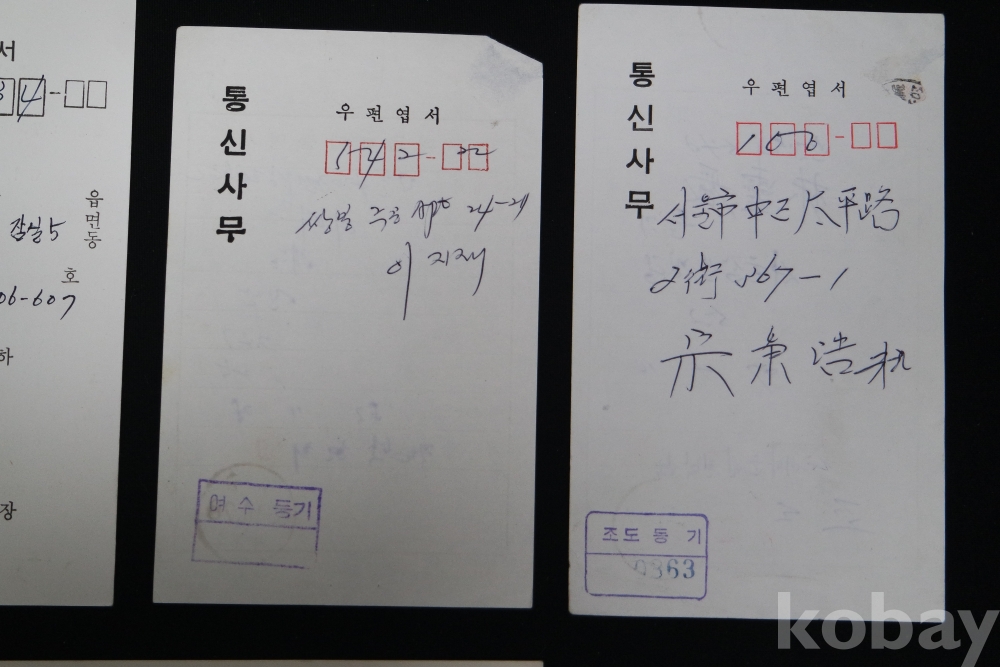 서
34-
읍
면
동
잠실5
호
06-607
하
장
통신사무
우편엽서
542-
쌍봉 주공 Apt 24-21
이지재
여수 등기
통신사무
우편엽서
100-
서울市 中구 太平路
2街 367-1
宗
조도 등기
0363
kobay